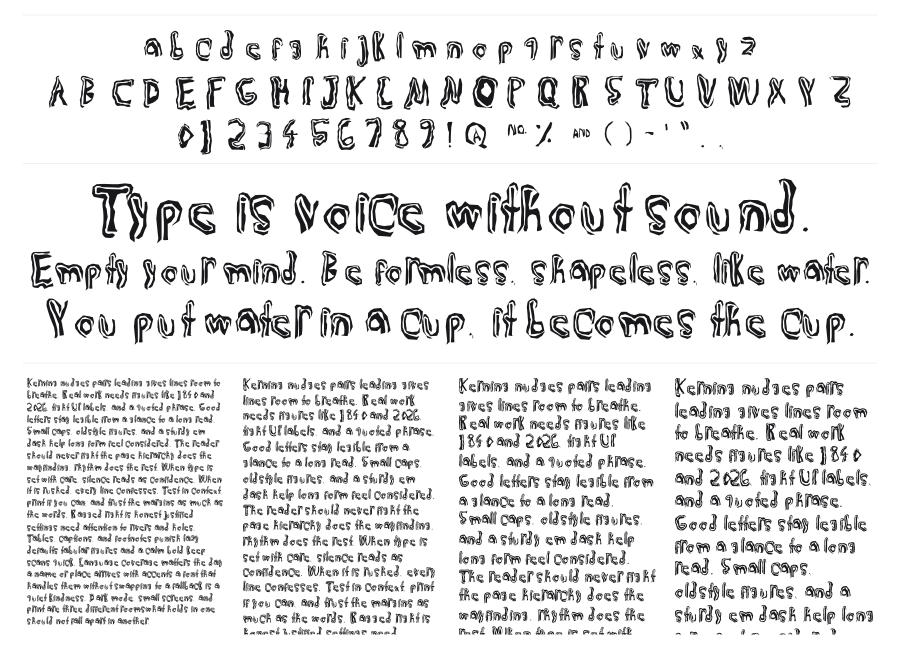 a b c d e f g h i j k l m n o p q r s t u v w x y z
A B C D E F G H I J K L M N O P Q R S T U V W X Y Z
0 1 2 3 4 5 6 7 8 9 ! @ No. % AND ( ) - ' " . ,
Type is voice without sound.
Empty your mind. Be formless, shapeless, like water.
You put water in a cup, it becomes the cup.
Kerning nudges pairs leading gives lines room to
breathe. Real work needs figures like 1840 and
2026, tight UI labels, and a quoted phrase. Good
letters stay legible from a glance to a long read.
Small caps, oldstyle figures, and a sturdy em
dash help long form feel considered. The reader
should never fight the page hierarchy does the
wayfinding, rhythm does the rest. When type is
set with care, silence reads as confidence. When
it is rushed, every line confesses. Test in context
print if you can, and trust the margins as much as
the words. Ragged right is honest justified
settings need attention to rivers and holes.
Tables, captions, and footnotes punish lazy
defaults tabular figures and a calm bold keep
scans quick. Language coverage matters the day
a name or place arrives with accents a font that
handles them without swapping to a fallback is a
quiet kindness. Dark mode, small screens, and
print are three different rooms what holds in one
should not fall apart in another.
Kerning nudges pairs leading gives
lines room to breathe. Real work
needs figures like 1840 and 2026,
tight UI labels, and a quoted phrase.
Good letters stay legible from a
glance to a long read. Small caps,
oldstyle figures, and a sturdy em
dash help long form feel considered.
The reader should never fight the
page hierarchy does the wayfinding,
rhythm does the rest. When type is
set with care, silence reads as
confidence. When it is rushed, every
line confesses. Test in context print
if you can, and trust the margins as
much as the words. Ragged right is
honest justified settings need
Kerning nudges pairs leading
gives lines room to breathe.
Real work needs figures like
1840 and 2026, tight UI
labels, and a quoted phrase.
Good letters stay legible from
a glance to a long read.
Small caps, oldstyle figures,
and a sturdy em dash help
long form feel considered.
The reader should never fight
the page hierarchy does the
wayfinding, rhythm does the
rest. When type is set with
Kerning nudges pairs
leading gives lines room
to breathe. Real work
needs figures like 1840
and 2026, tight UI labels,
and a quoted phrase.
Good letters stay legible
from a glance to a long
read. Small caps,
oldstyle figures, and a
sturdy em dash help long